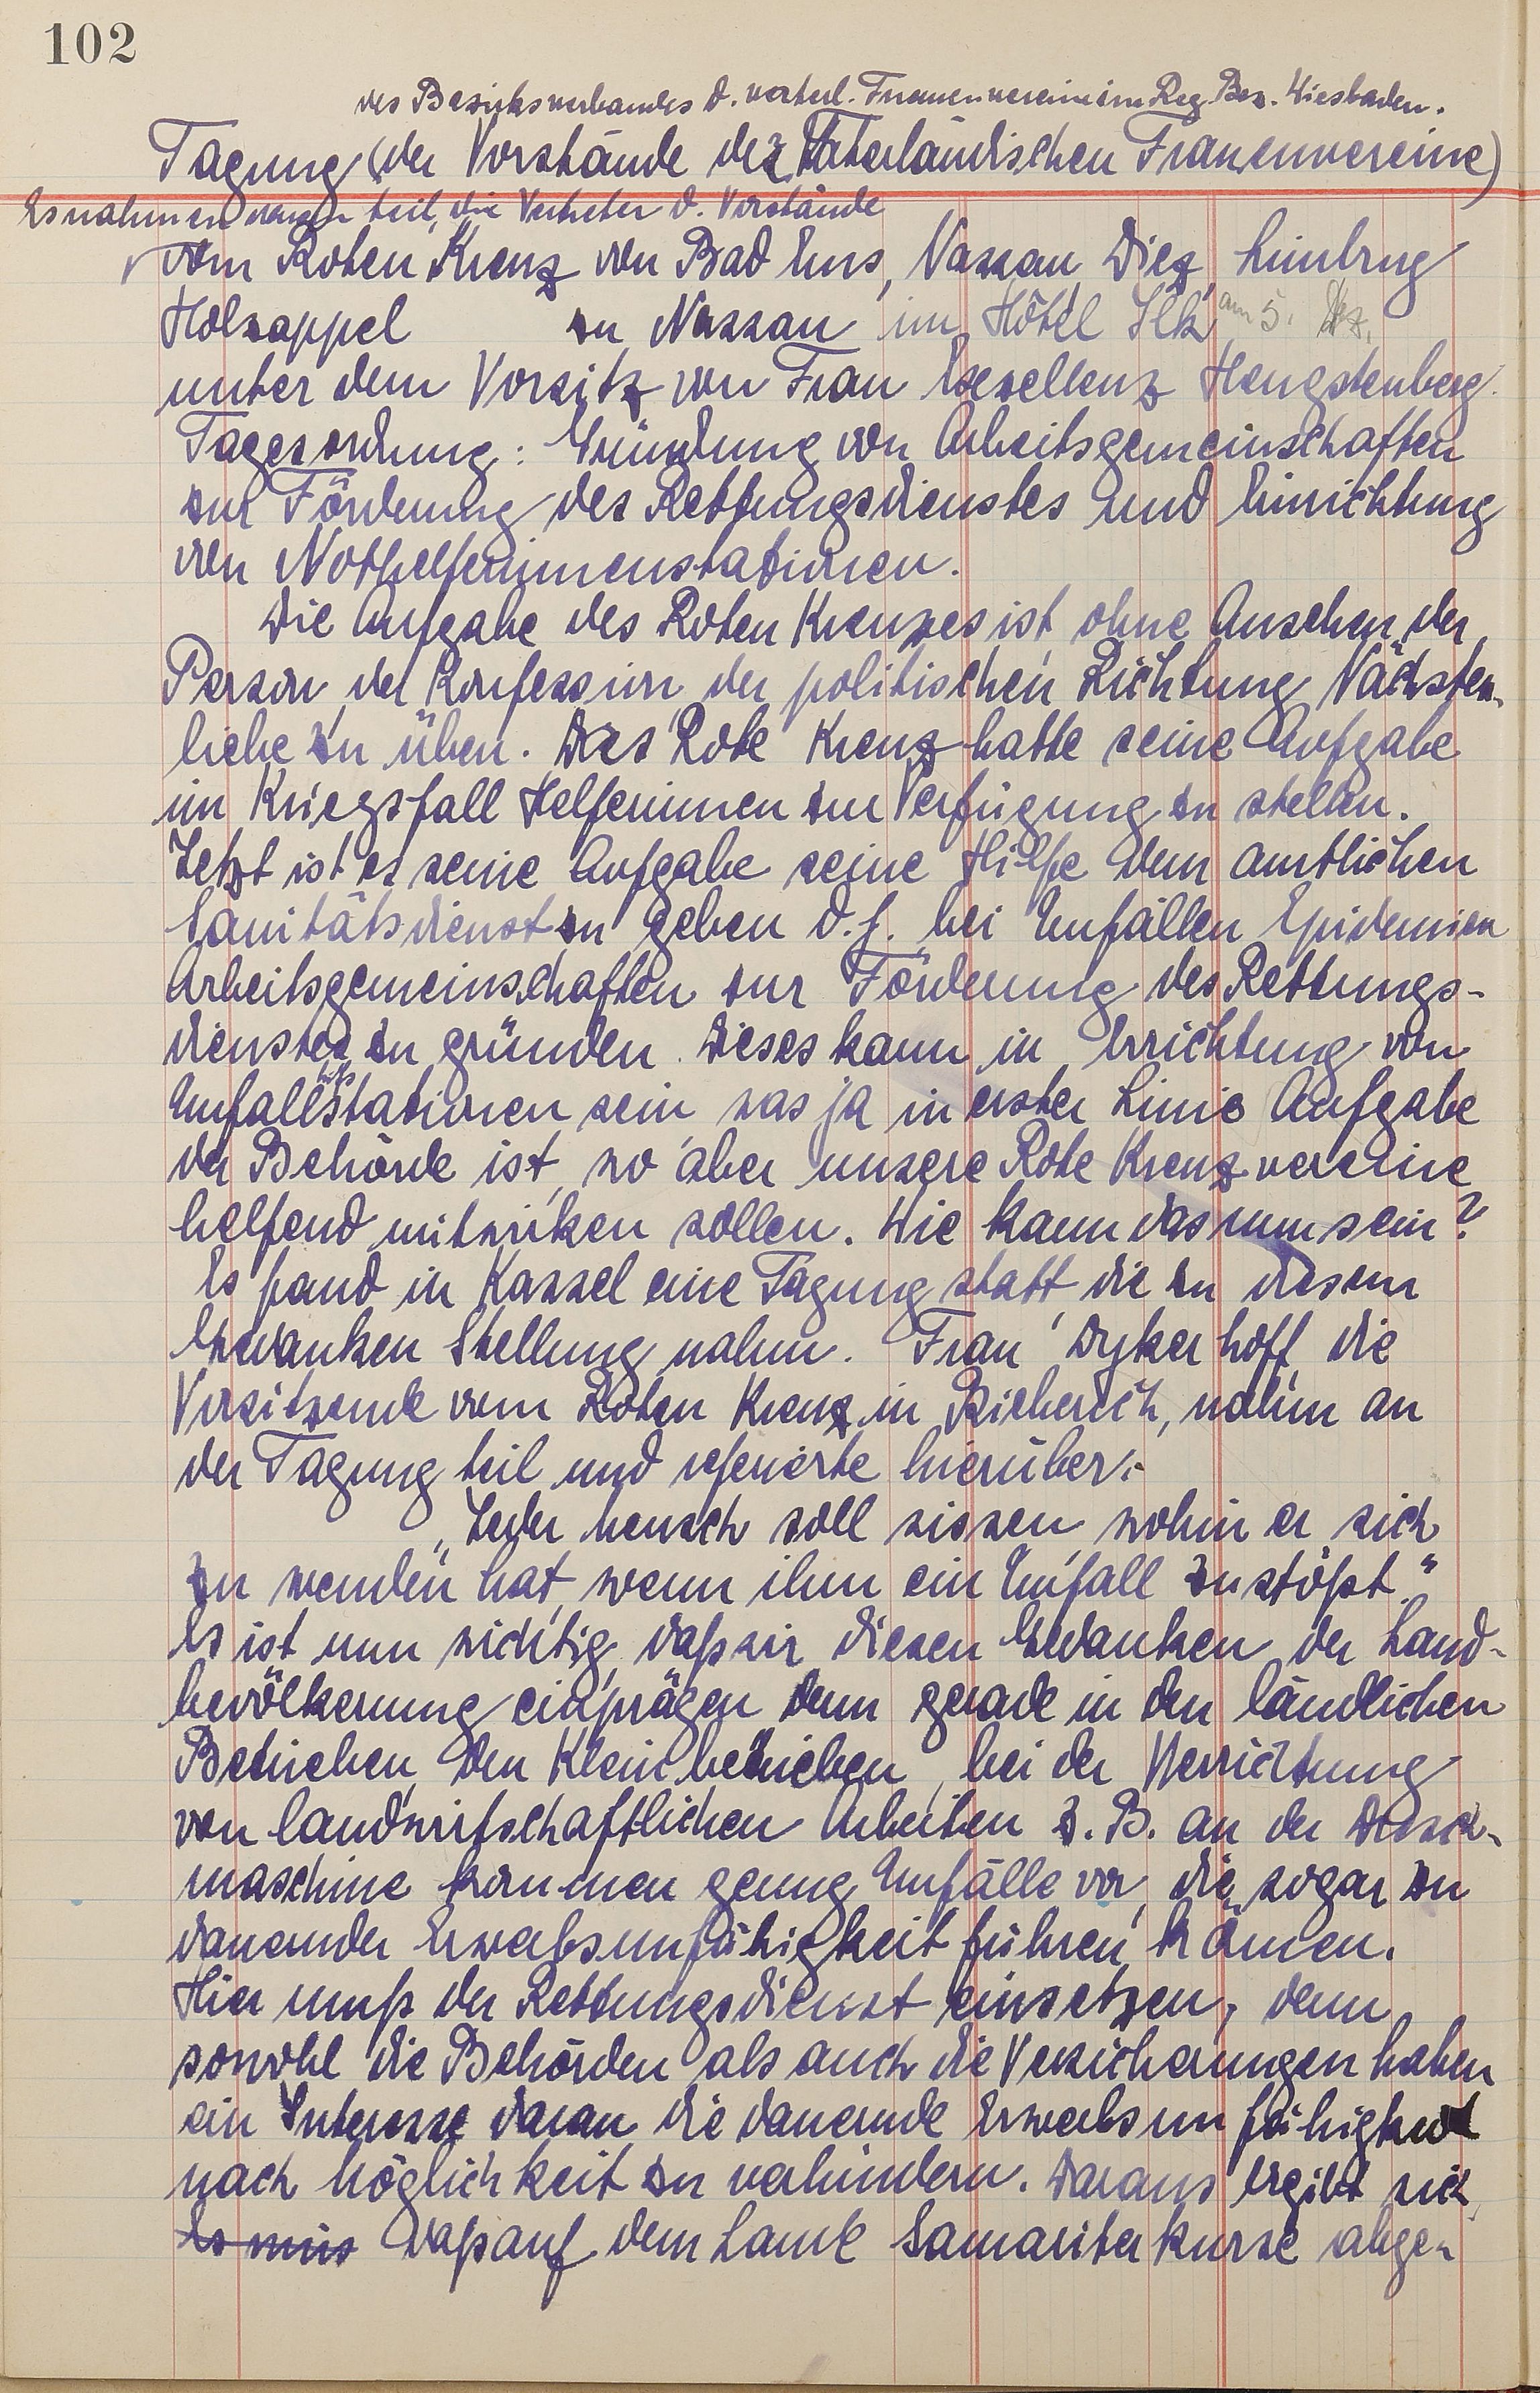 102
des Bezirksverbandes d. vaterl. Frauenvereine im Reg. Bez. Wiesbaden.
Tagung (der Vorstände des Vaterländischen Frauenvereine)
Es nahmen daran teil, die Vertreter d. Vorstände
vom Roten Kreuz von Bad Ems, Nassau, Diez, Limburg
Holzappel zu Nassau im Hôtel Ilk am 5. Dez.
unter dem Vorsitz von Frau Exzellenz Hengstenberg.
Tagesordnung: Gründung von Arbeitsgemeinschaften
zur Förderung des Rettungsdienstes und Einrichtung
von Nothelferinnenstationen.
Die Aufgabe des Roten Kreuzes ist, ohne Ansehen der
Person, der Konfession, der politischen Richtung Nächsten-
liebe zu üben. Das Rote Kreuz hatte seine Aufgabe
im Kriegsfall Helferinnen zur Verfügung zu stellen.
Jetzt ist es seine Aufgabe seine Hilfe dem amtlichen
Sanitätsdienst zu geben d. h. bei Unfällen Epidemien
Arbeitsgemeinschaften zur Förderung des Rettungs-
dienstes zu gründen. Dieses kann in Errichtung von
Unfallhilfsstationen sein was ja in erster Linie Aufgabe
der Behörde ist, wo aber unsere Rote Kreuzvereine
helfend mitwirken sollen. Wie kann das nun sein?
Es fand in Kassel eine Tagung statt die zu diesem
Gedanken Stellung nahm. Frau Dyker hoff, die
Vorsitzende vom Roten Kreuz in Bieberich, nahm an
der Tagung teil und referierte hierüber:
„Jeder Mensch soll wissen, wohin er sich
zu wenden hat, wenn ihm ein Unfall zustößt."
Es ist nun wichtig, daß wir diesen Gedanken der Land-
bevölkerung einprägen denn gerade in den ländlichen
Betrieben, den Kleinbetrieben, bei der Verrichtung
von landwirtschaftlichen Arbeiten z. B. an der Dresch-
maschine kommen genug Unfälle vor, die sogar zu
dauernder Erwerbsunfähigkeit führen können.
Hier muß der Rettungsdienst einsetzen, denn
sowohl die Behörden als auch die Versicherungen haben
ein Interesse daran die dauernde Erwerbsunfähigkeit
nach Möglichkeit zu verhindern. Daraus ergibt sich,
Es mus daß auf dem Lande Samariterkurse abge-